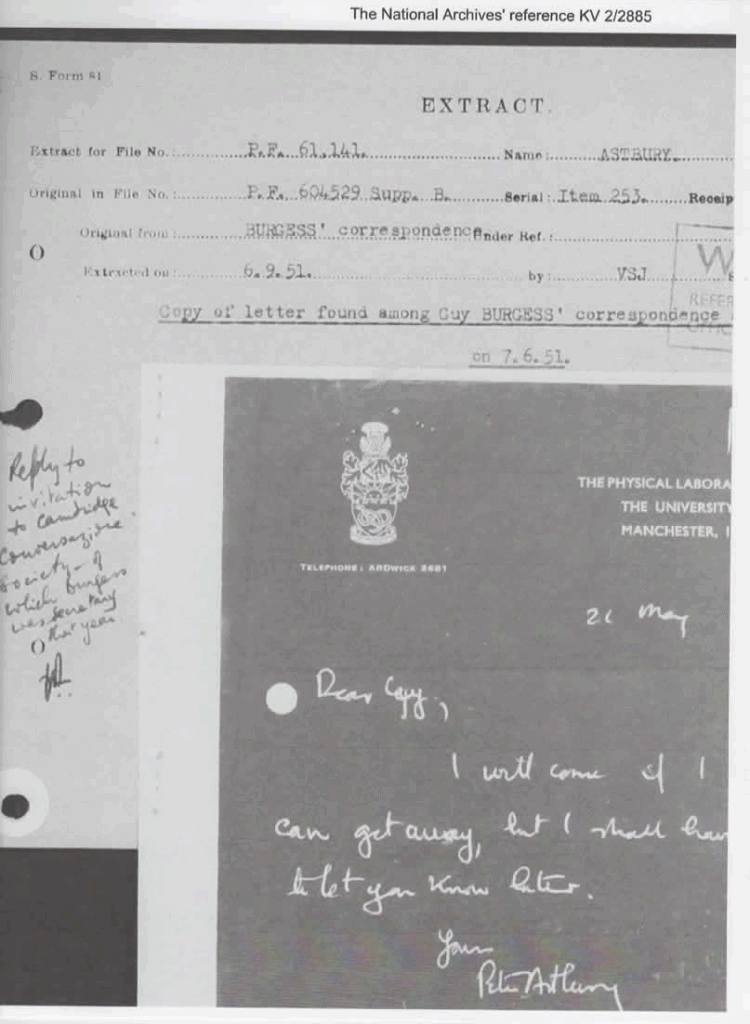 The National Archives' reference KV 2/2885
S. Form 81
EXTRACT.
Extract for File No.: P.F. 61,141. Name: ASTBURY.
Original in File No.: P.F. 604529 Supp. B. Serial: Item 253. Receip
Original from: BURGESS' correspondence Under Ref.:
Extracted on: 6.9.51. by: VSJ
W
REFER
Copy of letter found among Guy BURGESS' correspondence
on 7.6.51.
Reply to
invitation
to Cambridge
Conversazione
Society - of
which Burgess
was secretary
that year.
THE PHYSICAL LABORA
THE UNIVERSITY
MANCHESTER,
TELEPHONE: ARDWICK 2681
May
Dear Guy,
I will come if I
can get away, but I shall hav
to let you know later.
Yours
Peter Astbury